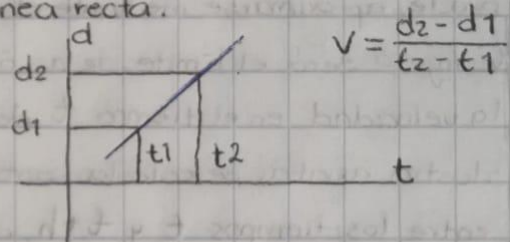 nea recta.
d
V = d2 - d1 / t2 - t1
d2
d1
t1 t2
t